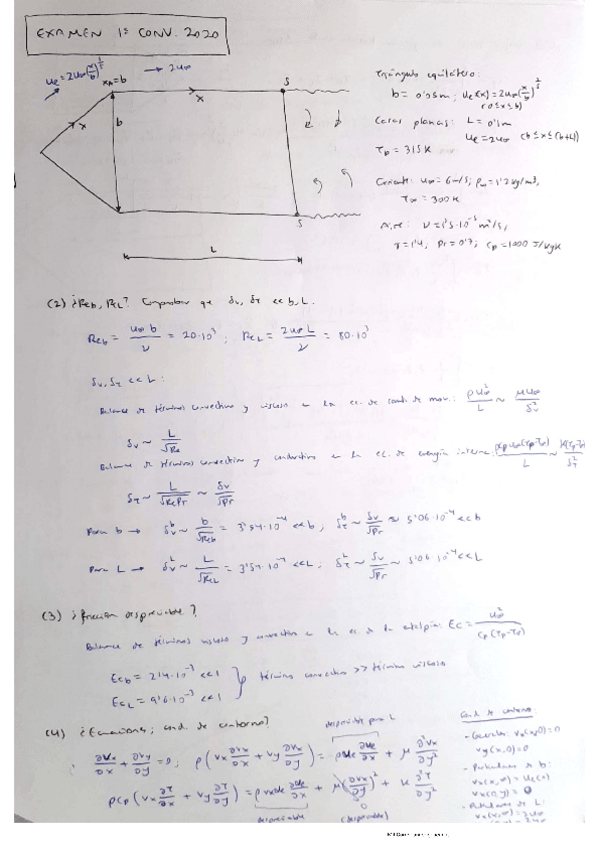 EXAMEN 1ª CONV. 2020
ue = 2u∞(x/b)^(1/5)
xA = b
→ 2u∞
x
x
b
S
S
L
Triángulo equilátero:
b = 0'05m; ue(x) = 2u∞(x/b)
(0≤x≤b)
Caras planas: L = 0'1m
ue = 2u∞ (b≤x≤(b+L))
Tp = 315K
Corriente: u∞ = 6m/s; ρ∞ = 1'2 kg/m3,
T∞ = 300K
Aire: ν = 1'5·10^-5 m²/s,
γ = 1'4, Pr = 0'7; cp = 1000 J/kgK
(2) ¿Reb, ReL? Comprobar que δv, δT << b, L.
Reb = u∞ b / ν = 20·10³; ReL = 2u∞ L / ν = 80·10³
δv, δT << L:
Balance de términos convectivo y viscoso en la ec. de cantd. de mov.: ρu∞²/L ~ μu∞/δv²
δv ~ L/√Re
Balance de términos convectivo y conductivo en la ec. de energía interna: ρcp u∞(Tp-T∞)/L ~ k(Tp-T∞)/δT²
δT ~ L/√(RePr) ~ δv/√Pr
Para b → δv^b ~ b/√Reb = 3'54·10^-4 << b; δT^b ~ δv/√Pr ≈ 5'06·10^-4 << b
Para L → δv^L ~ L/√ReL = 3'54·10^-4 << L; δT^L ~ δv/√Pr ~ 5'06·10^-4 << L
(3) ¿Fricción despreciable?
Balance de términos viscoso y convectivo en la ec. de la entalpía: Ec = u∞²/(cp(Tp-T∞))
Ecb = 2'4·10^-3 << 1
EcL = 9'6·10^-3 << 1
} término convectivo >> término viscoso
(4) ¿Ecuaciones, cond. de contorno?
despreciable para L
∂vx/∂x + ∂vy/∂y = 0; ρ(vx ∂vx/∂x + vy ∂vx/∂y) = ρue ∂ue/∂x + μ ∂²vx/∂y²
ρcp(vx ∂T/∂x + vy ∂T/∂y) = ρvxue ∂ue/∂x + μ(∂vx/∂y)² + k ∂²T/∂y²
despreciable
0
(despreciable)
Cond. de contorno:
vx(x,0) = 0
vy(x,0) = 0
- Particulares de b:
vx(x,∞) = ue(x)
- Particulares de L: